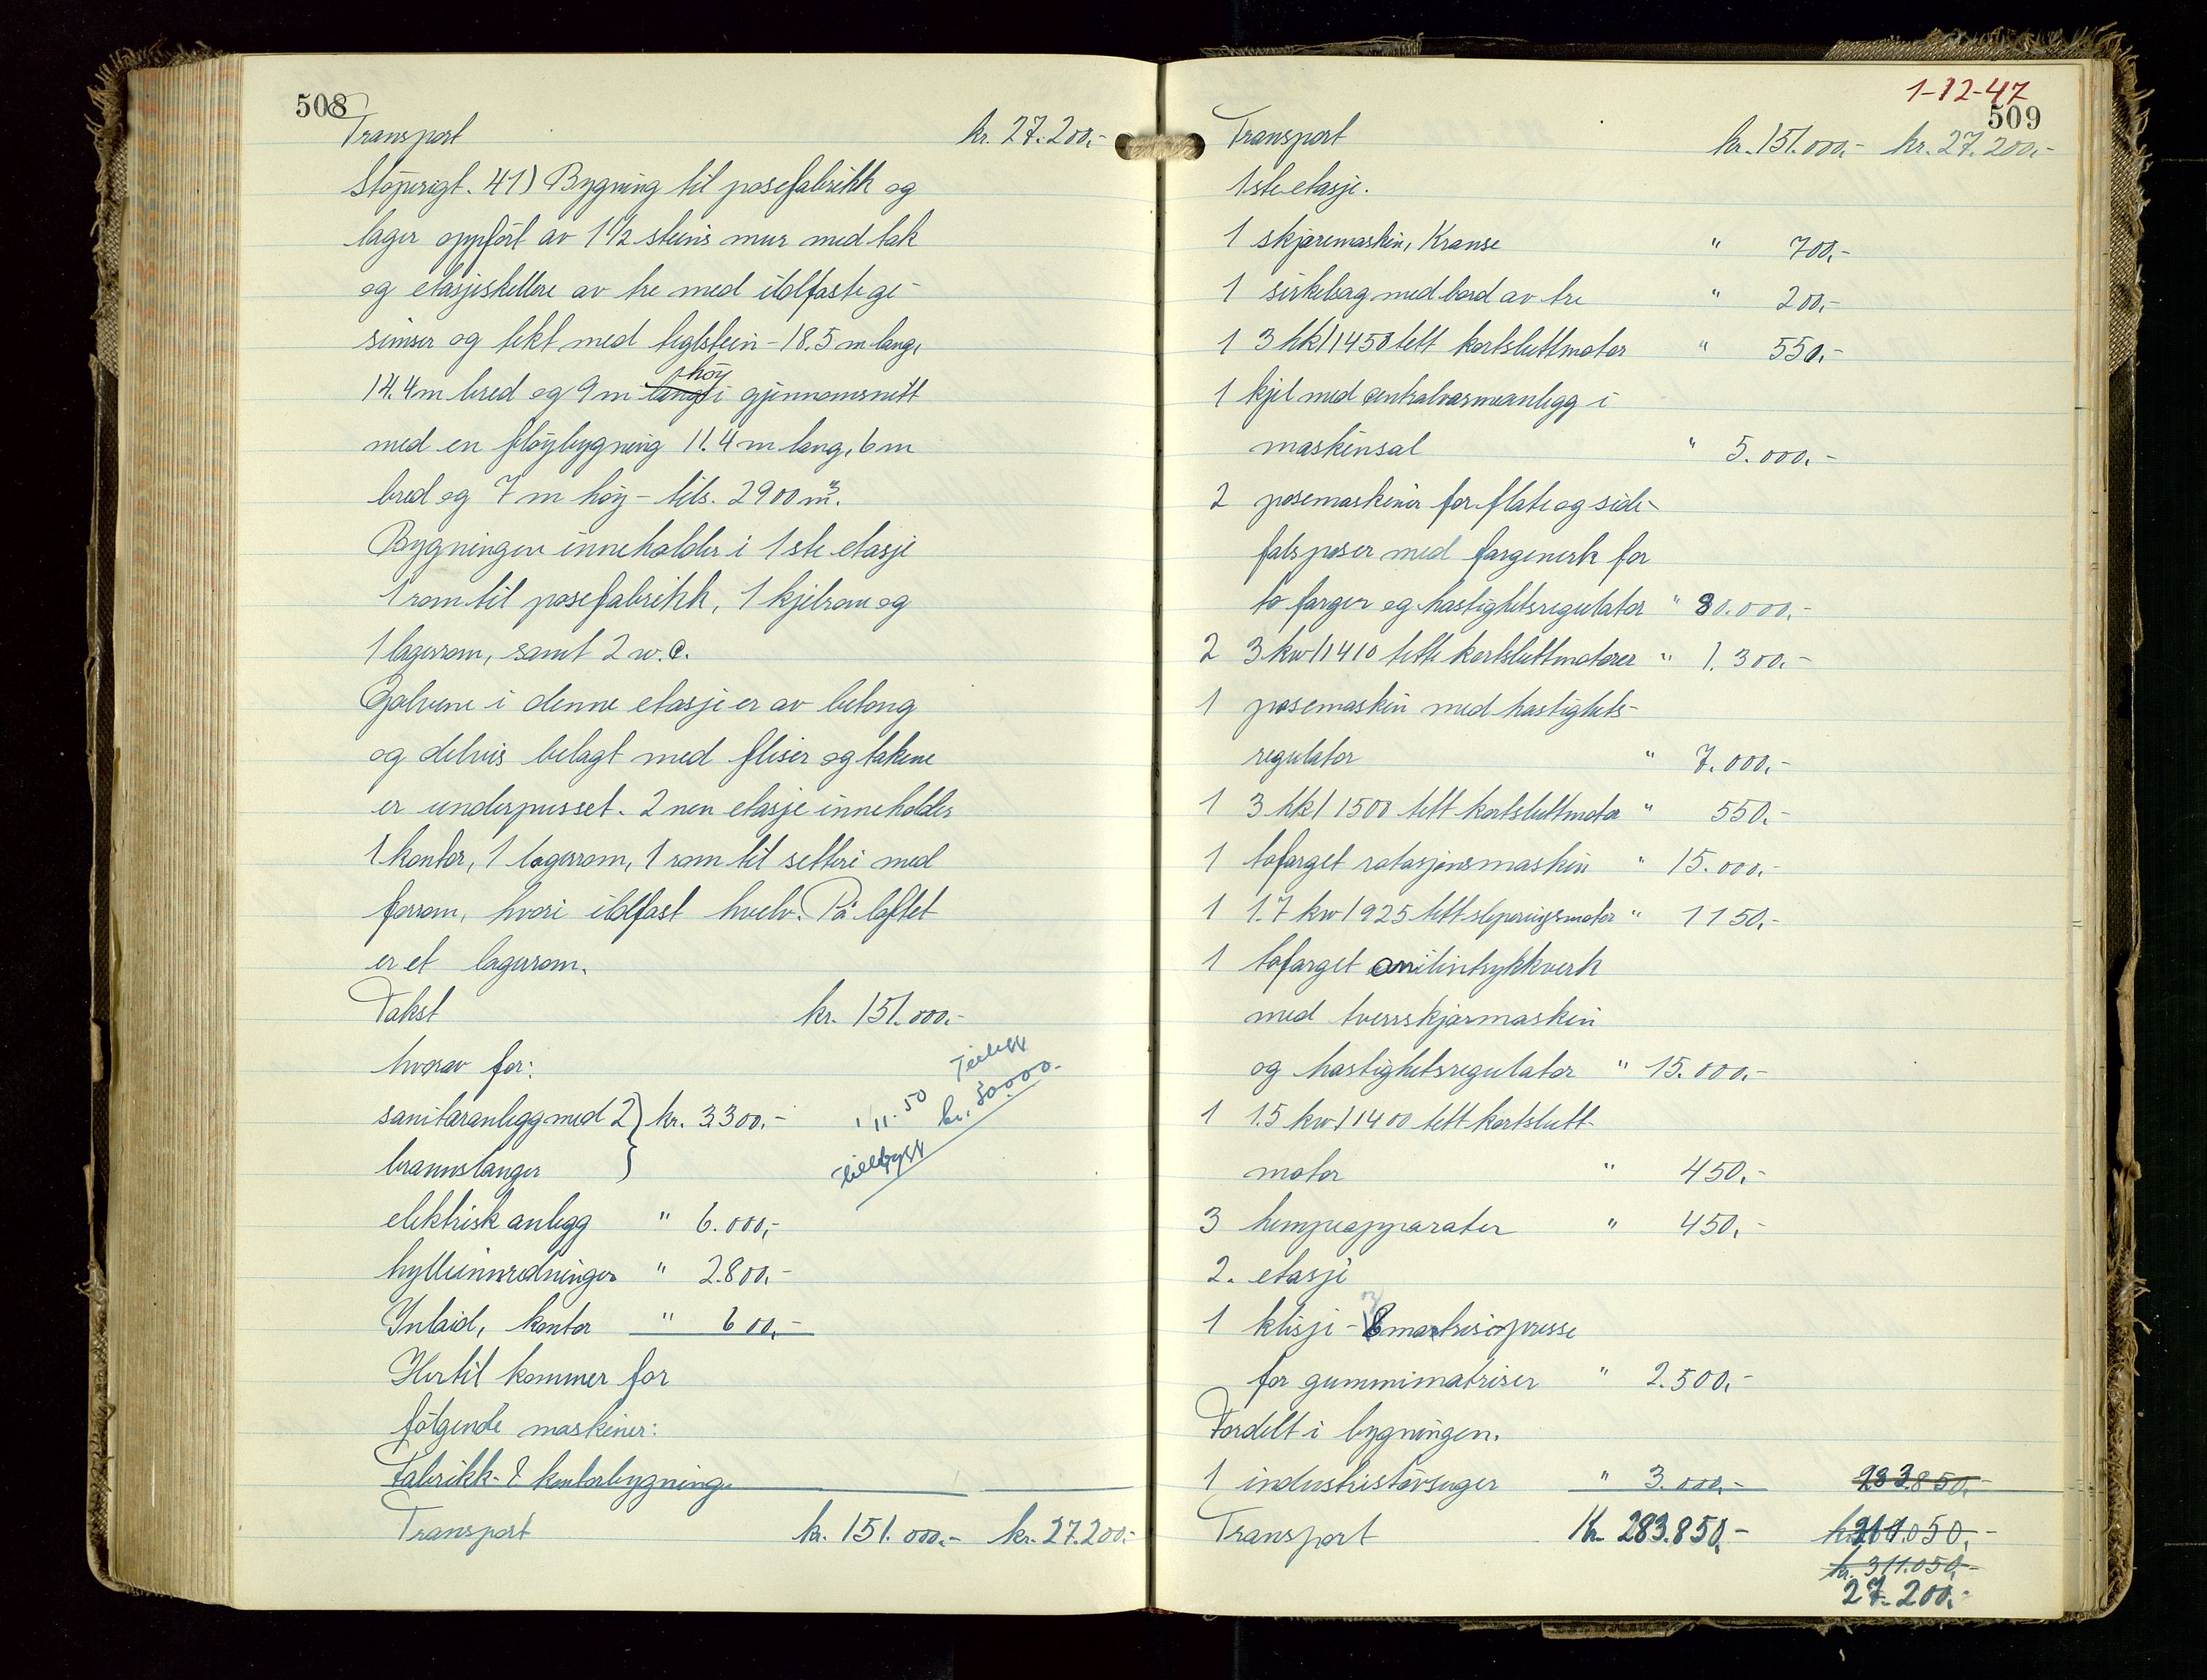 508
Transport kr. 27.200,-
Støperigt. 41) Bygning til posefabrikk og
lager oppført av 1 1/2 steins mur med tak
og etasjeskillere av tre med ildfaste ge-
simser og tekt med teglstein - 18.5 m lang,
14.4 m bred og 9 m lang høy i gjennomsnitt
med en fløybygning 11.4 m lang, 6 m
bred og 7 m høy - tils. 2900 m³.
Bygningen inneholder i 1ste etasje
1 rom til posefabrikk, 1 kjelrom og
1 lagerrom, samt 2 w.c.
Golvene i denne etasje er av betong
og delvis belagt med fliser og takene
er underpusset. 2nen etasje inneholder
1 kontor, 1 lagerrom, 1 rom til setteri med
forrom, hvori ildfast hvelv. På loftet
er et lagerrom.
Takst kr. 151.000,-
hvorav for:
sanitæranlegg med 2 } kr. 3300,-
brannslanger
elektrisk anlegg " 6.000,-
hylleinnredninger " 2.800,-
Inlaid, kontor " 600,-
1/11.50 kr. 50000.-
Tillegg
Hertil kommer for
følgende maskiner:
Fabrikk- & kontorbygning.
Transport kr. 151.000,- kr. 27.200,-
1-12-47
509
Transport kr. 151.000,- kr. 27.200,-
1ste etasje.
1 skjæremaskin, Krause " 700,-
1 sirkelsag med bord av tre " 200,-
1 3 hk/1450 tett kortsluttmotor " 550,-
1 kjel med centralvarmeanlegg i
maskinsal " 5.000,-
2 posemaskiner for flate og side-
falsposer med fargeverk for
to farger og hastighetsregulator " 80.000,-
2 3 kw/1410 tette kortsluttmotorer " 1.300,-
1 posemaskin med hastighets-
regulator " 7.000,-
1 3 hk/1500 tett kortsluttmotor " 550,-
1 tofarget rotasjonsmaskin " 15.000,-
1 1.7 kw/925 tett sleperingsmotor " 1150,-
1 tofarget anilintrykkverk
med tverrskjærmaskin
og hastighetsregulator " 15.000,-
1 1.5 kw/1400 tett kortslutt-
motor " 450,-
3 limpeapparater " 450,-
2. etasje
1 klisje- & matrisepresse
for gummimatriser " 2.500,-
Fordelt i bygningen.
1 industristøvsuger " 3.000,- 283.850,-
Transport Kr. 283.850,-
kr. 311.050,-
27.200,-